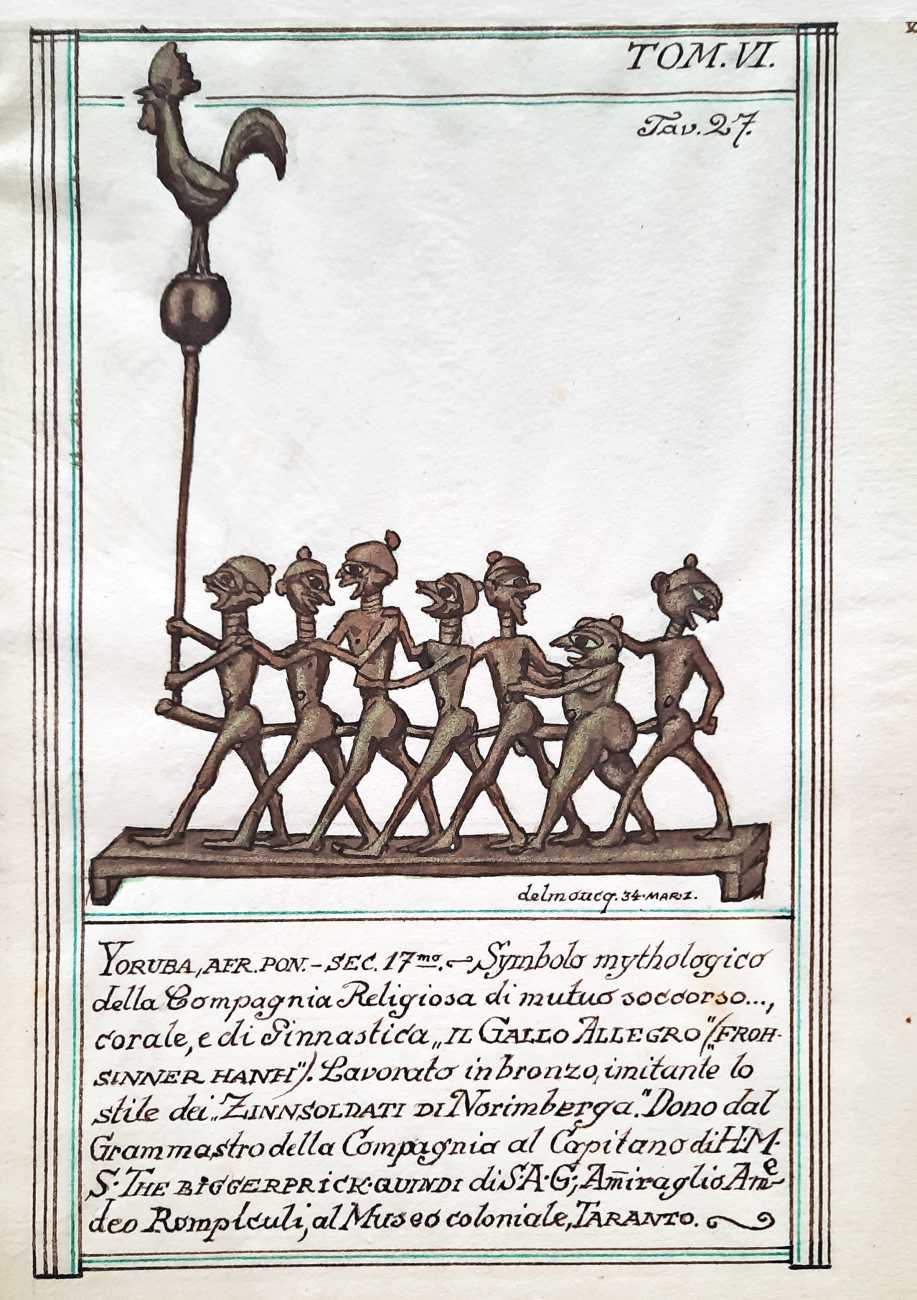 TOM. VI.
Tav. 27.
delmoucq. 34. MARZ.
YORUBA, AFR. PON. - SEC. 17mo. Symbolo mythologico
della Compagnia Religiosa di mutuo soccorso...,
corale, e di Ginnastica „IL GALLO ALLEGRO" („FROH-
SINNER HANH"). Lavorato in bronzo, imitante lo
stile dei „ZINNSOLDATI DI Norimberga." Dono dal
Grammastro della Compagnia al Capitano di H·M·
S· THE BIGGERPRICK·QUINDI di S·A·G·, Am̄iraglio Ame-
deo Rompiculi, al Museo coloniale, TARANTO.